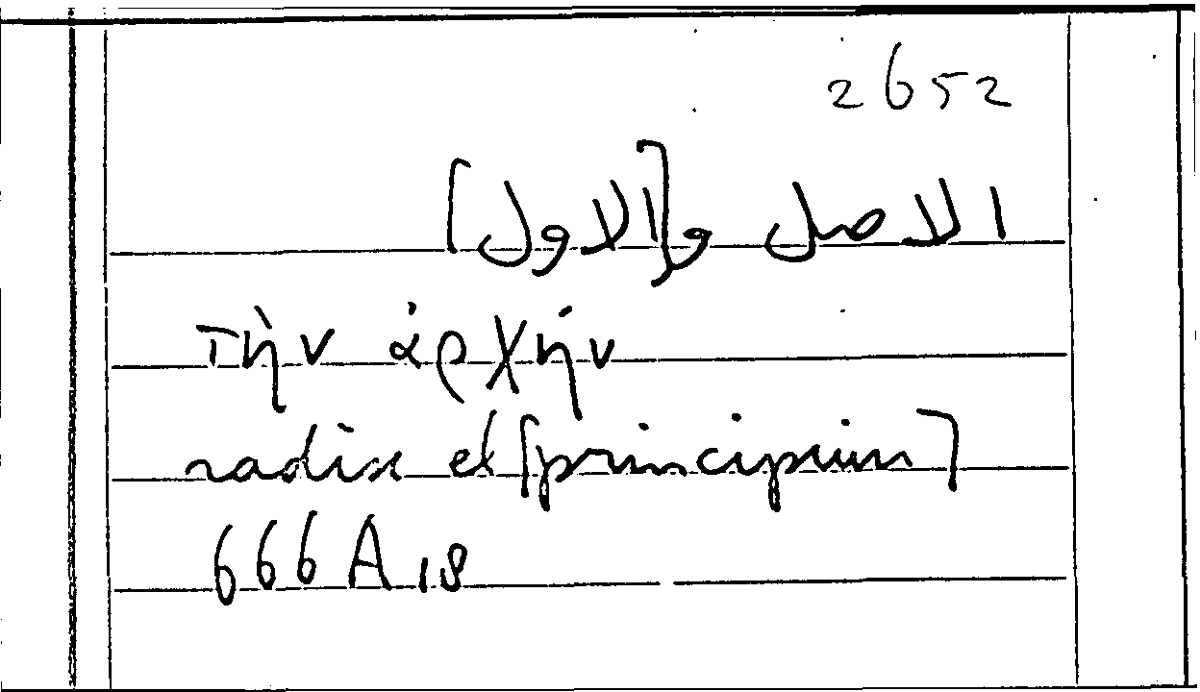 2652
الاصل و[الاول]
τὴν ἀρχήν
radix et [principium]
666 A 18